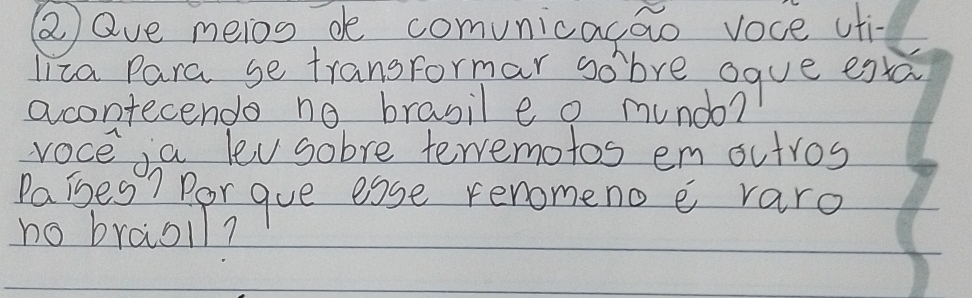 ② Que meios de comunicação você uti-
liza Para se transformar sobre oque está
acontecendo no brasil e o mundo?
você ja leu sobre terremotos em outros
Países? Por que esse fenomeno é raro
no brasil?